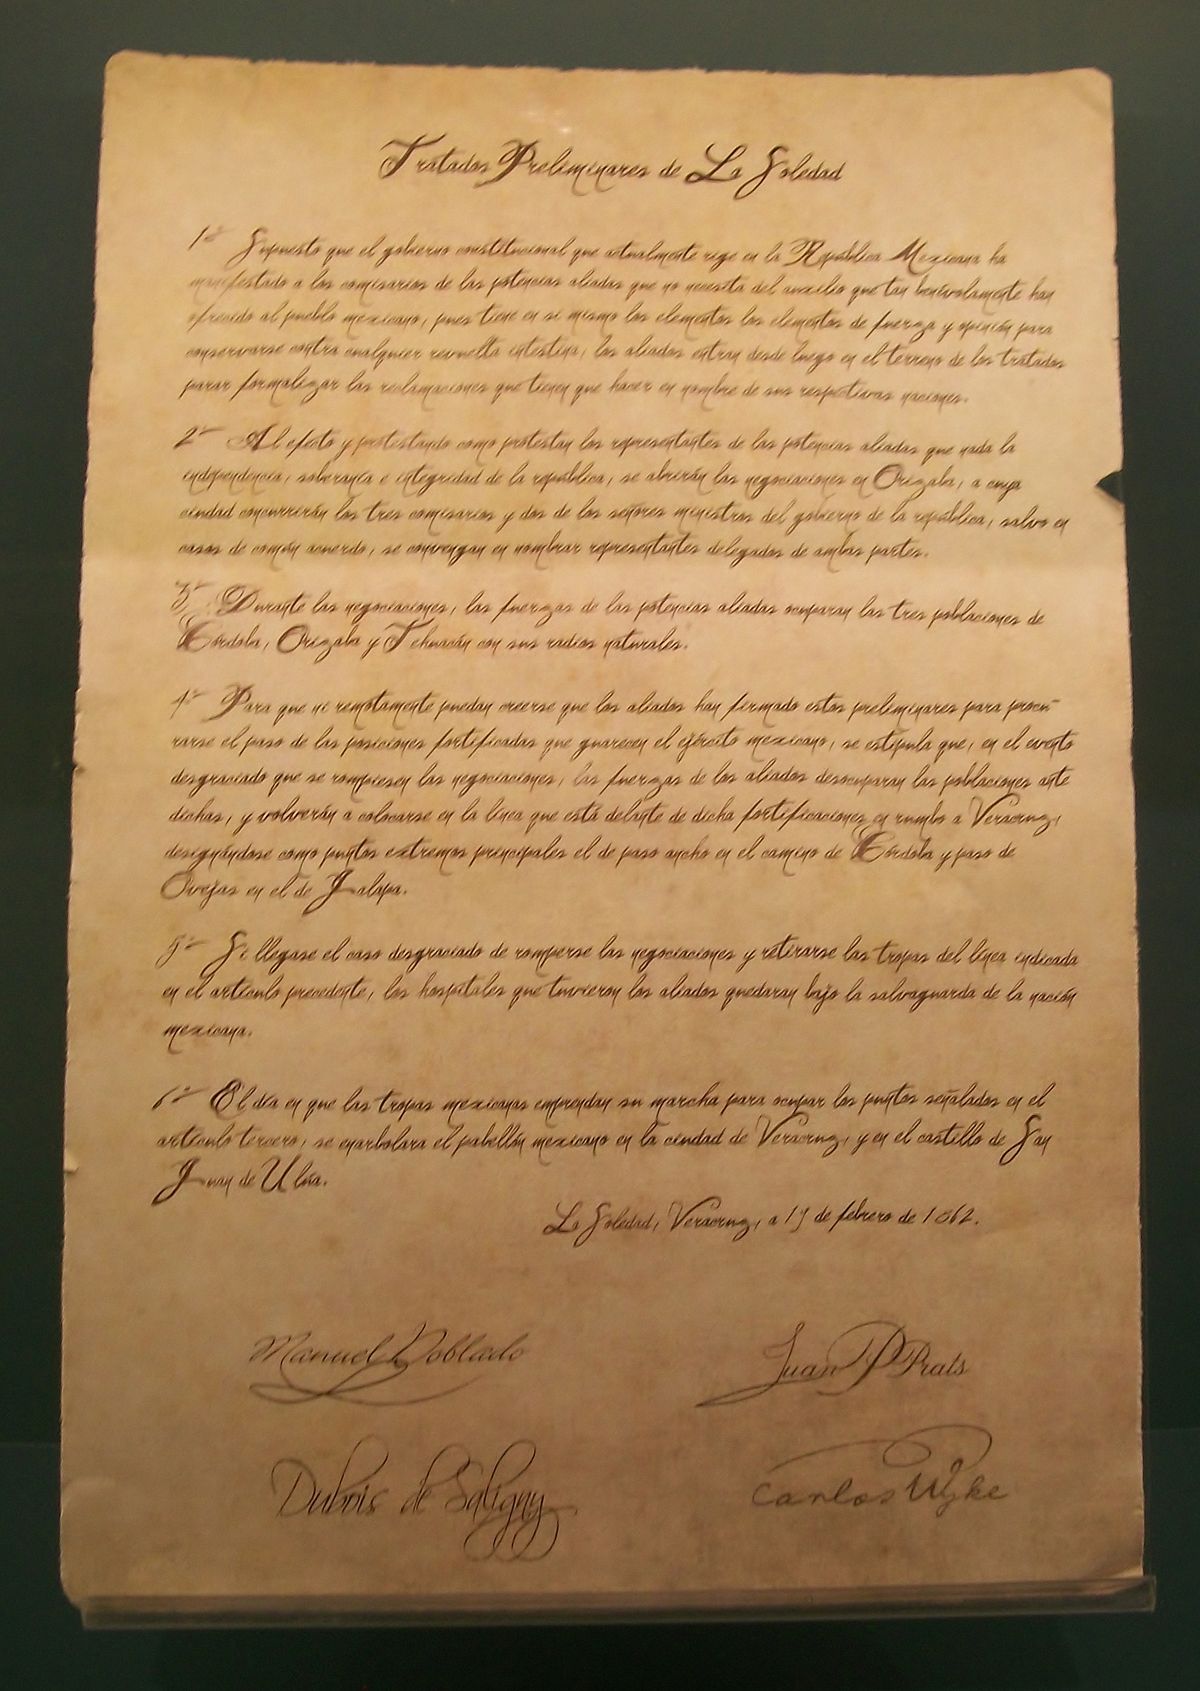 Tratados Preliminares de La Soledad
1º Supuesto que el gobierno constitucional que actualmente rige en la República Mexicana ha
manifestado a los comisarios de las potencias aliadas que no necesita del auxilio que tan benévolamente han
ofrecido al pueblo mexicano, pues tiene en sí mismo los elementos los elementos de fuerza y opinión para
conservarse contra cualquier revuelta intestina, los aliados entran desde luego en el terreno de los tratados
parar formalizar las reclamaciones que tienen que hacer en nombre de sus respectivas naciones.
2º Al efecto y protestando como protestan los representantes de las potencias aliadas que nada la
independencia, soberanía e integridad de la república, se abrirán las negociaciones en Orizaba, a cuya
ciudad concurrirán los tres comisarios y dos de los señores ministros del gobierno de la república, salvo en
casos de común acuerdo, se convengan en nombrar representantes delegados de ambas partes.
3º Durante las negociaciones, las fuerzas de las potencias aliadas ocuparan las tres poblaciones de
Córdoba, Orizaba y Tehuacán con sus radios naturales.
4º Para que ni remotamente puedan creerse que los aliados han firmado estos preliminares para procu-
rarse el paso de las posiciones fortificadas que guarecen el ejército mexicano, se estipula que, en el evento
desgraciado que se rompiesen las negociaciones, las fuerzas de los aliados desocuparan las poblaciones ante
dichas, y volverán a colocarse en la línea que está delante de dicha fortificaciones en rumbo a Veracruz,
designándose como puntos extremos principales el de paso ancho en el camino de Córdoba y paso de
Ovejas en el de Jalapa.
5º Si llegase el caso desgraciado de romperse las negociaciones y retirarse las tropas del línea indicada
en el artículo precedente, los hospitales que tuvieron los aliados quedaran bajo la salvaguarda de la nación
mexicana.
6º El día en que las tropas mexicanas emprendan su marcha para ocupar los puntos señalados en el
artículo tercero, se enarbolara el pabellón mexicano en la ciudad de Veracruz, y en el castillo de San
Juan de Ulúa.
La Soledad, Veracruz, a 19 de febrero de 1862.
Manuel Doblado
Juan P Prats
Dubois de Saligny
Carlos Wyke